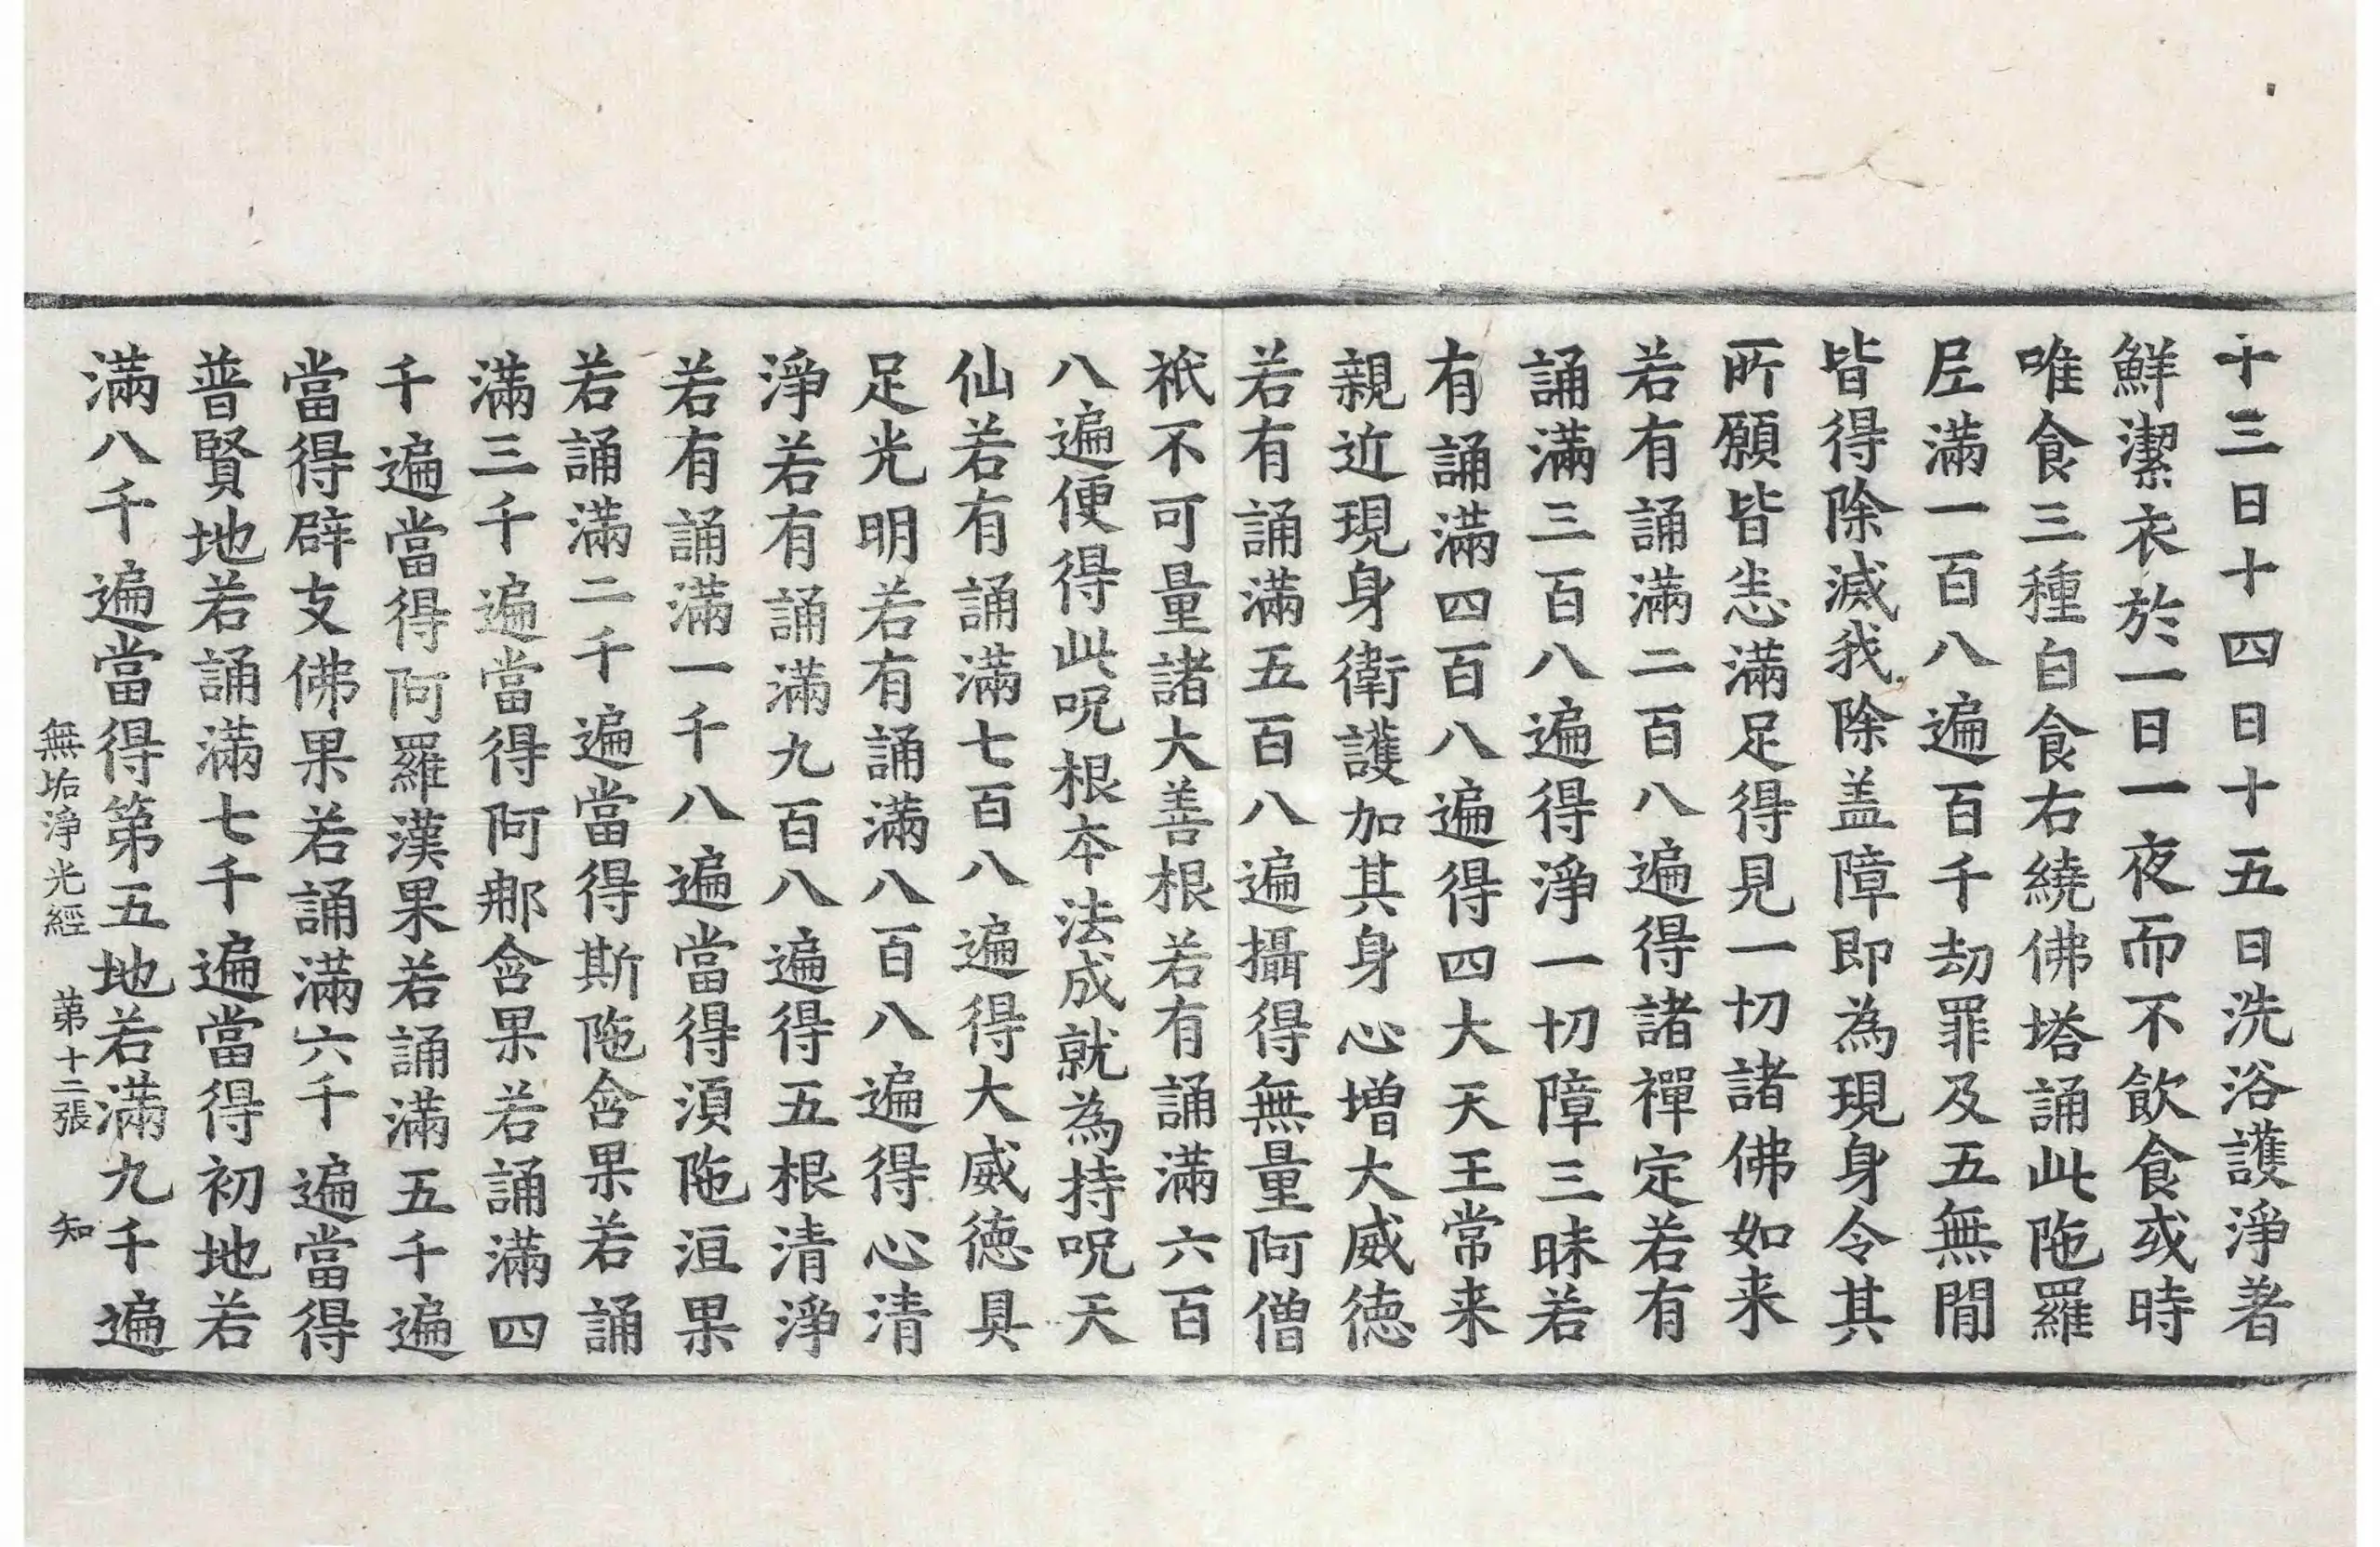 十三日十四日十五日洗浴護淨著
鮮潔衣於一日一夜而不飲食或時
唯食三種白食右繞佛塔誦此陁羅
尼滿一百八遍百千劫罪及五無間
皆得除滅我除盖障即為現身令其
所願皆悉滿足得見一切諸佛如来
若有誦滿二百八遍得諸禪定若有
誦滿三百八遍得淨一切障三昧若
有誦滿四百八遍得四大天王常来
親近現身衛護加其身心增大威徳
若有誦滿五百八遍攝得無量阿僧
祇不可量諸大善根若有誦滿六百
八遍便得此呪根本法成就為持呪天
仙若有誦滿七百八遍得大威徳具
足光明若有誦滿八百八遍得心清
淨若有誦滿九百八遍得五根清淨
若有誦滿一千八遍當得湏陁洹果
若誦滿二千遍當得斯陁含果若誦
滿三千遍當得阿那含果若誦滿四
千遍當得阿羅漢果若誦滿五千遍
當得辟支佛果若誦滿六千遍當得
普賢地若誦滿七千遍當得初地若
滿八千遍當得第五地若滿九千遍
無垢淨光經　第十二張　知